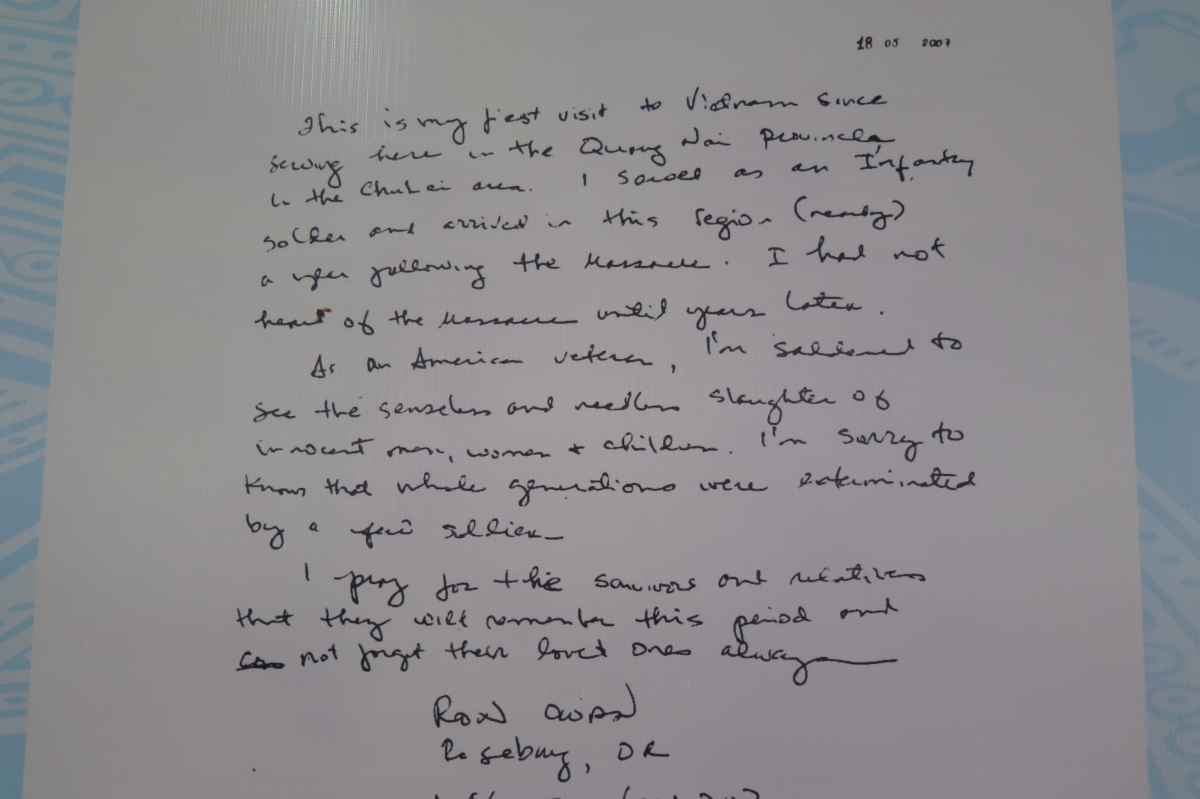 18 05 2007
This is my first visit to Vietnam since
serving here in the Quang Nai Province
in the Chu Lai area. I served as an Infantry
soldier and arrived in this region (nearly)
a year following the Massacre. I had not
heard of the Massacre until years later.
As an American veteran, I'm saddened to
see the senseless and needless slaughter of
innocent men, women + children. I'm sorry to
know that whole generations were exterminated
by a few soldiers
I pray for the survivors and relatives
that they will remember this period and
not forget their loved ones always
Ron
Roseburg, OR